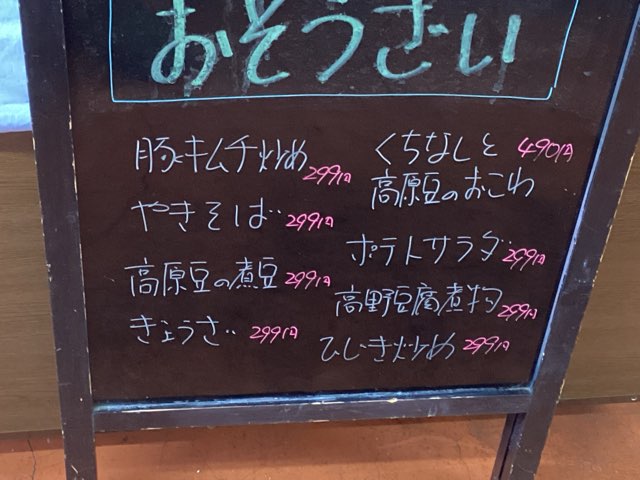 おそうざい
豚キムチ炒め 299円
やきそば 299円
高原豆の煮豆 299円
ぎょうざ 299円
くちなしと 490円
高原豆のおこわ
ポテトサラダ 299円
高野豆腐煮物 299円
ひじき炒め 299円